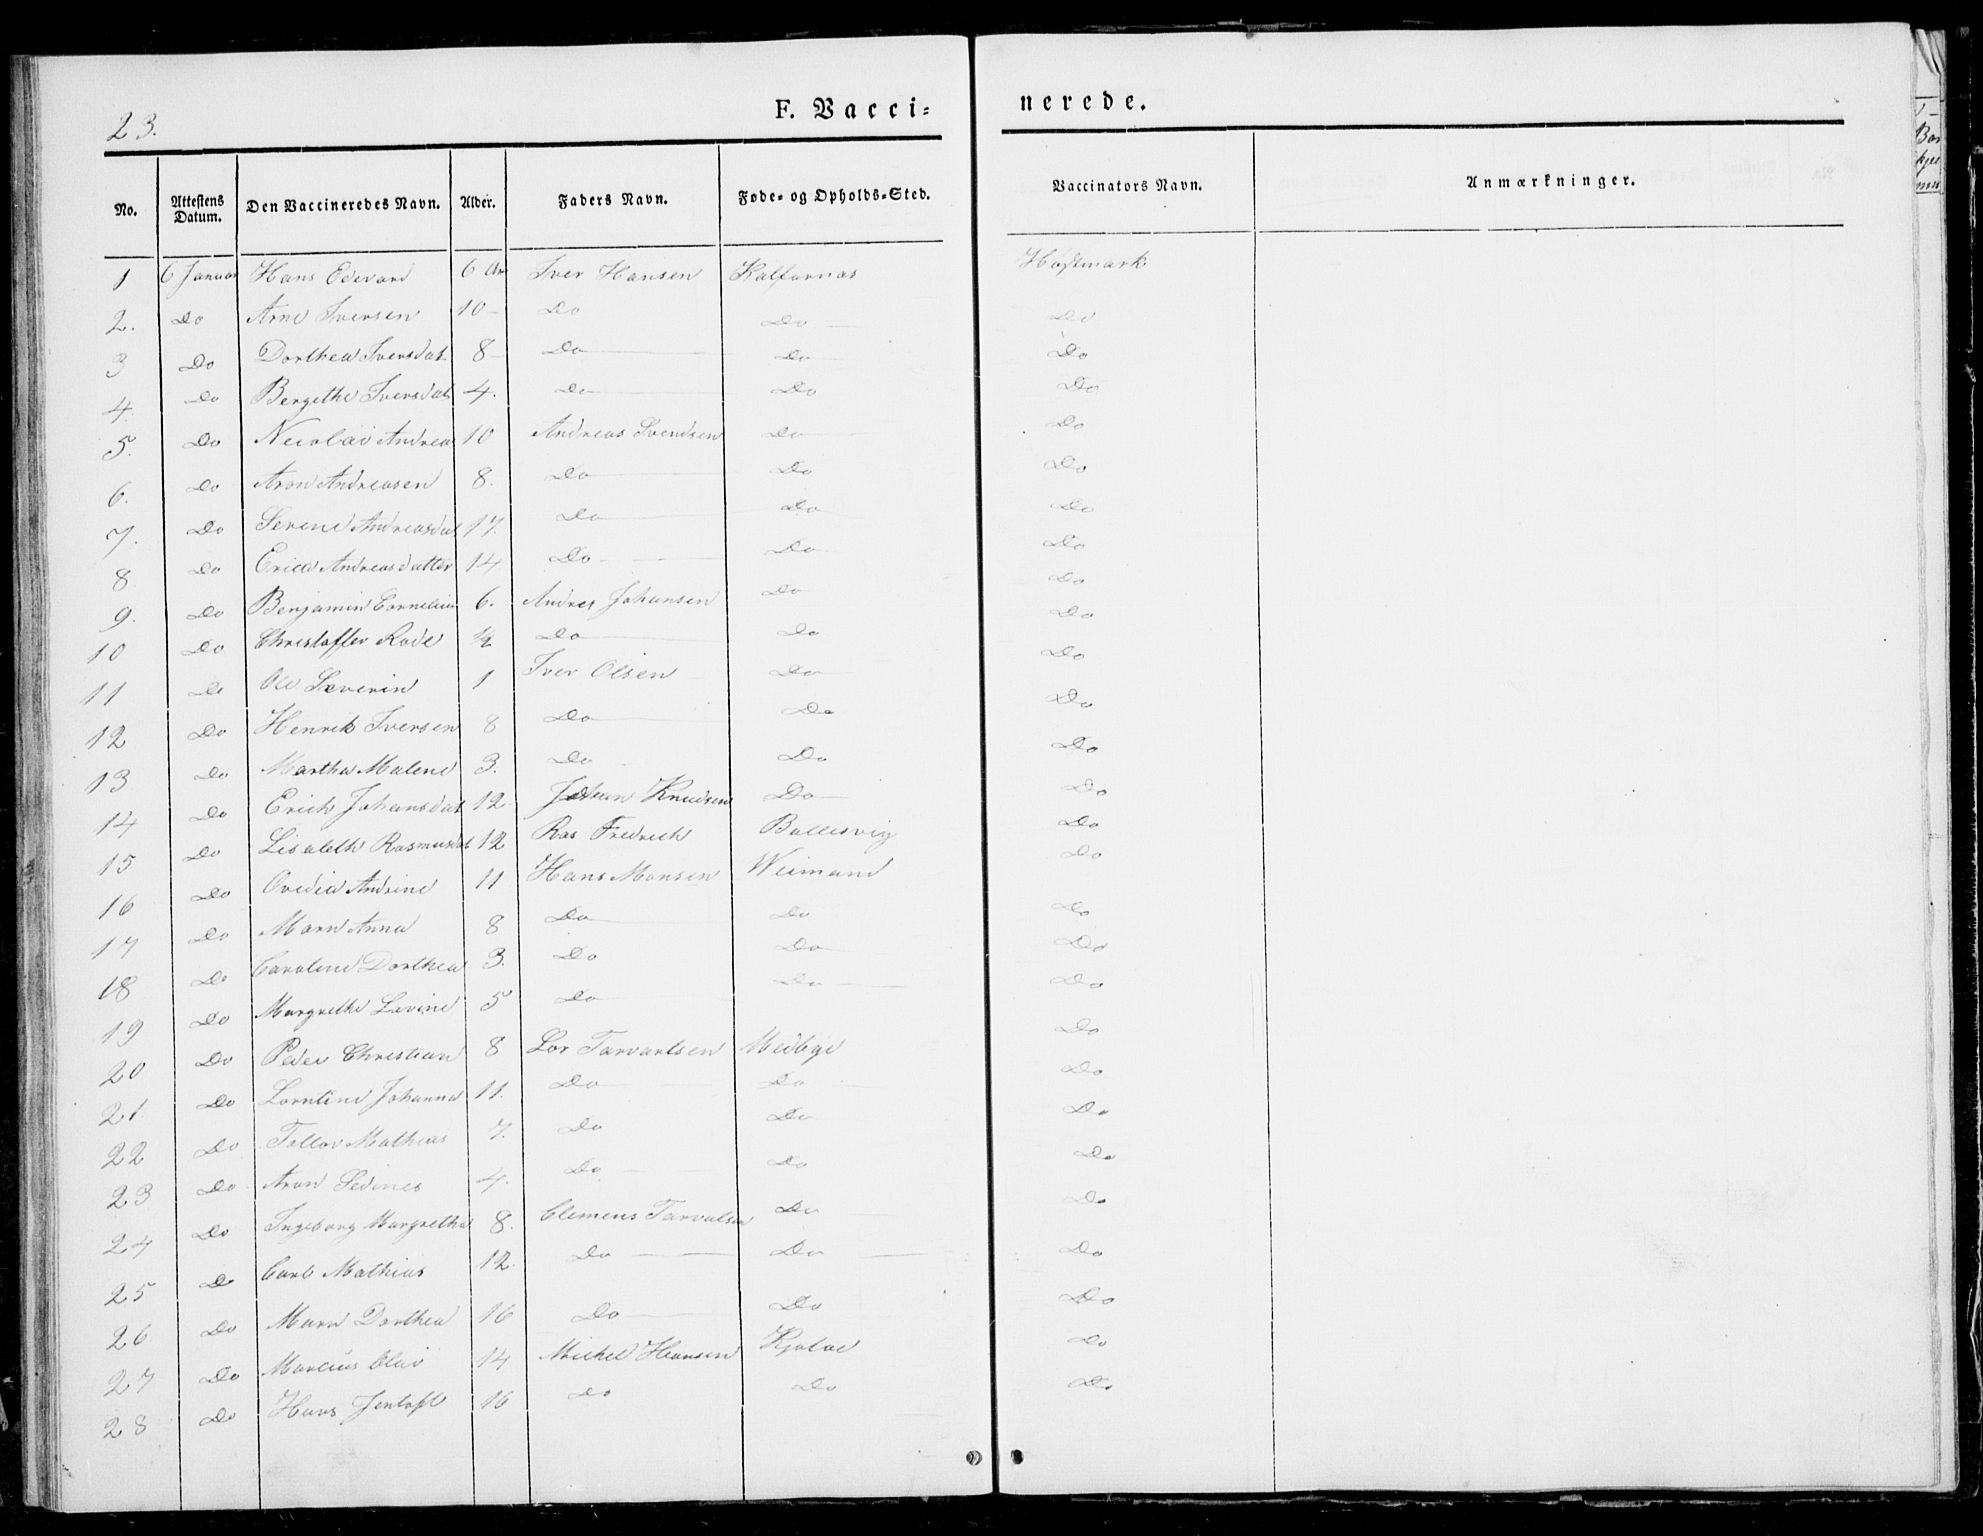 23.
F. Vacci=
nerede.
No. Attestens Datum. Den Vaccineredes Navn. Alder. Faders Navn. Føde= og Opholds=Sted. Vaccinators Navn. Anmærkninger.
1 6 Januar Hans Edevard 6 Iver Hansen Kalfarnas
2. Do Arne Iversen 10 Do Do Do
3 Do Dorthea Iversdat 8 Do Do Do
4. Do Bergethe Iversdat 4. Do Do Do
5. Do Nicolai Andrea 10 Andreas Svendsen Do Do
6. Do Aron Andreasen 8. Do Do Do
7. Do Serine Andreasdat 17. Do Do Do
8. Do Andreasdatter 14 Do Do Do
9. Do Benjamin Cornelius 6. Andres Johansen Do Do
10 Do Christoffer Rode ½ Do Do Do
11 Do Ole Severin 1 Iver Olsen Do Do
12 Do Henrik Iversen 8 Do Do Do
13 Do Martha Malene 3. Do Do Do
14 Do Erick Johansdat 12 Johan Knudsen Do Do
15 Do Lisabeth Rasmusdat 12 Ras Fredrich Ballesvig Do
16 Do Ovedia Andrine 11 Hans Monsen Weimand Do
17 Do Marn Anna 8 Do Do Do
18 Do Caroline Dorthea 3. Do Do Do
19 Do Margrethe Lovine 5 Do Do Do
20 Do Peder Christian 8 Lor Tarvaldsen Medbye Do
21 Do Lorntine Johanna 11. Do Do Do
22 Do Tollov Mathias 7. Do Do Do
23 Do Aron Sedines 4. Do Do Do
24 Do Ingeborg Margretha 8. Clemens Tarvalsen Do Do
25 Do Carl Mathias 12. Do Do Do
26 Do Marn Dorthea 16 Do Do Do
27 Do Marcius 14 Michel Hansen Do
28 Do Hans Jentoft 16 Do Do Do